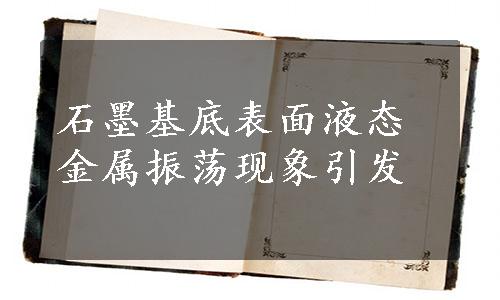 石墨基底表面液态
金属振荡现象引发